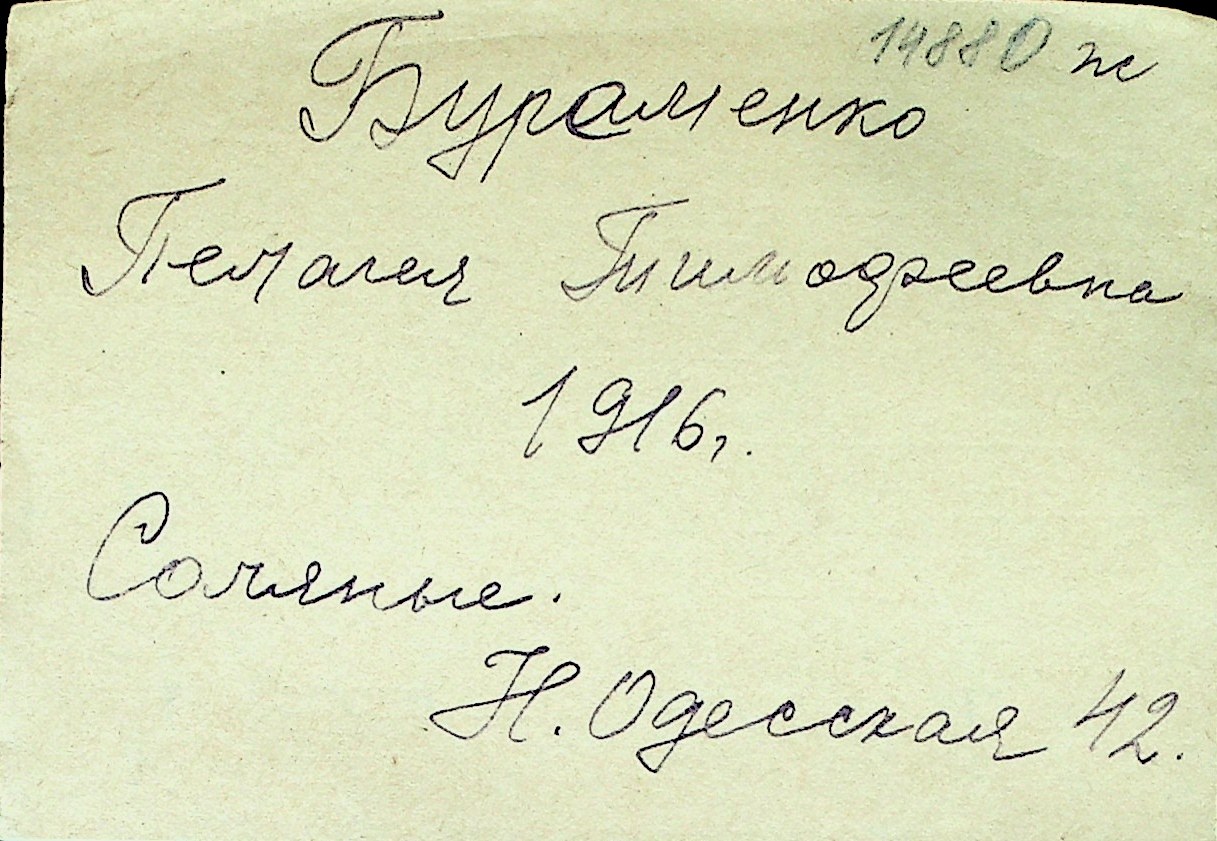 14880 ж
Бураменко
Пелагея Тимофеевна
1916г.
Соляные.
Н. Одесская 42.